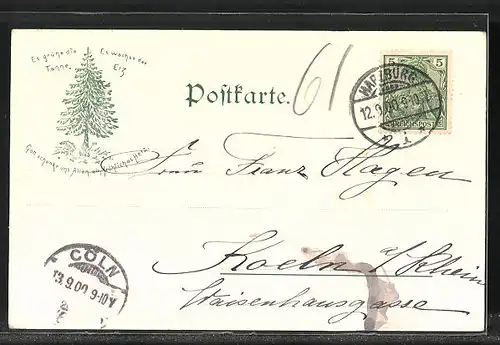 Es grüne die Tanne,
Es wachse das Erz
Gott schenke uns Allen ein fröhliches Herz
Postkarte.
61
5 5
HARZBURG
12.9.00. 8-10
Frau Franz Hagen
Koeln a/Rhein
Waisenhausgasse
CÖLN
13.9.00 9-10V